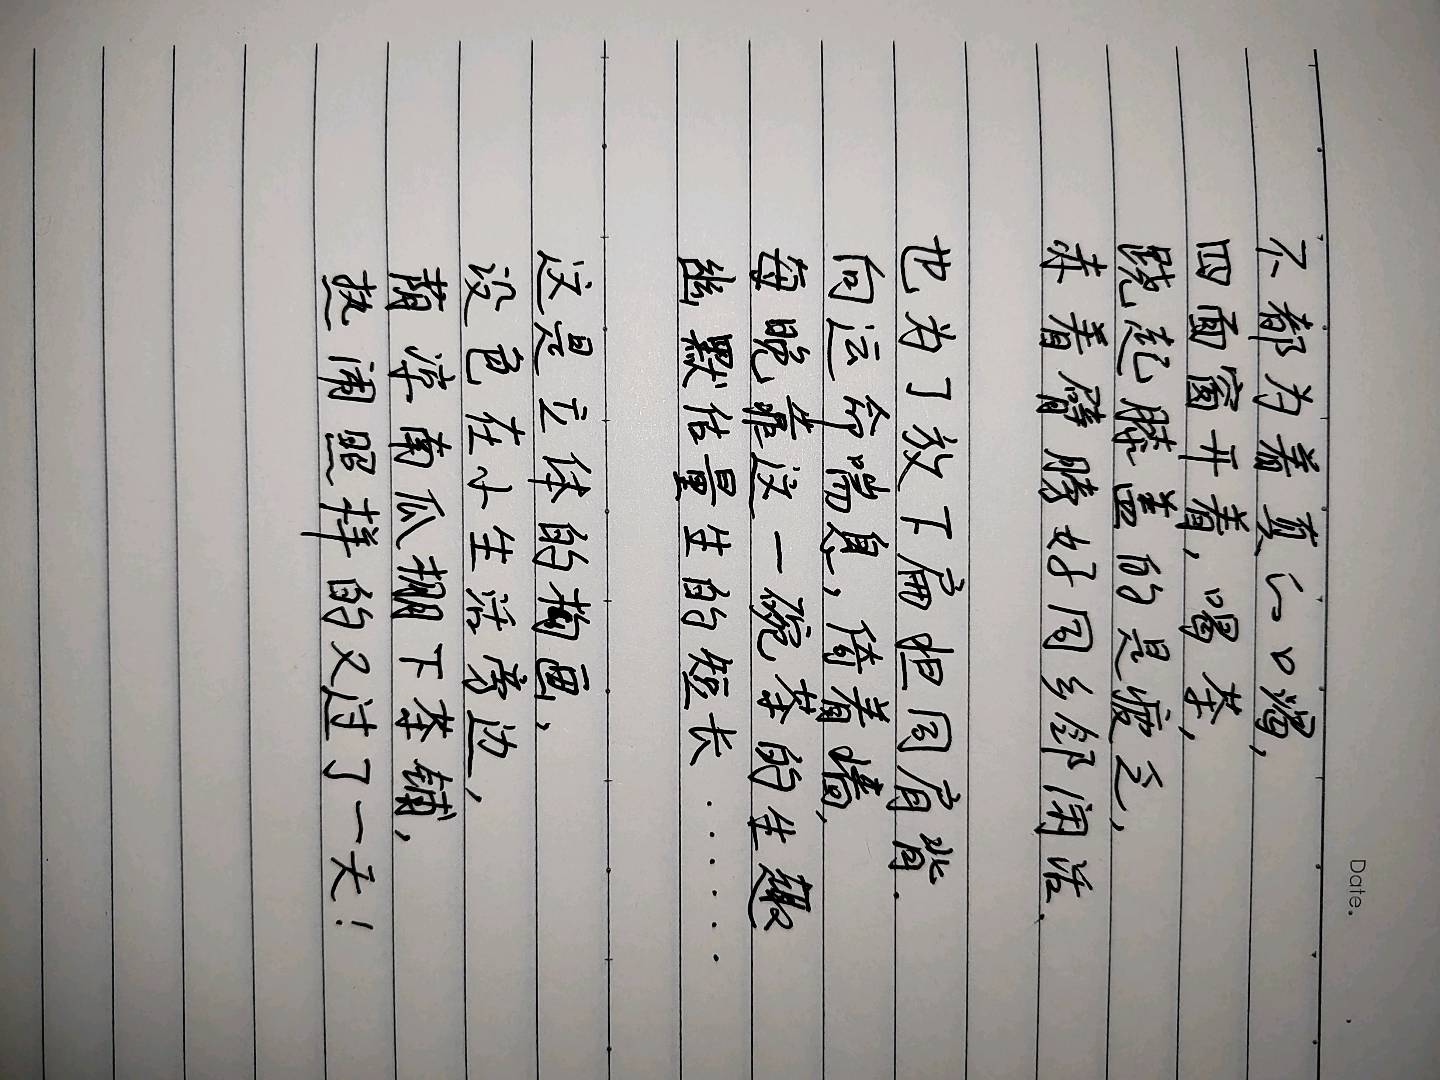 Date.
不都为着真心口渴，
四面窗开着，喝茶，
跷起膝盖的是疲乏，
赤着臂膀好同乡邻闲话.
也为了放下扁担同肩背.
向运命喘息，倚着墙，
每晚靠这一碗茶的生趣
幽默估量生的短长······
这是立体的构画，
设色在小生活旁边，
荫凉南瓜棚下茶铺，
热闹照样的又过了一天！